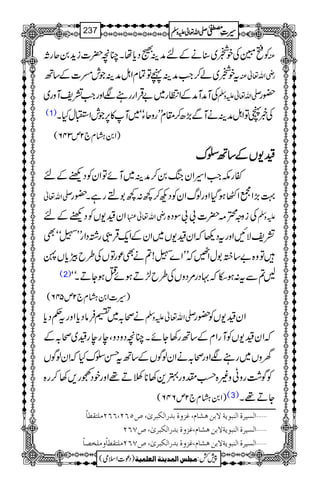 سیرتِ مصطفیٰ صلی اللہ تعالیٰ علیہ وسلم
237
عنہ کو فتح مبین کی خوشخبری سنانے کے لئے مدینہ بھیج دیا تھا۔ چنانچہ حضرت زید بن حارثہ
رضی اللہ تعالیٰ عنہ یہ خوشخبری لے کر جب مدینہ پہنچے تو تمام اہل مدینہ جوش مسرت کے ساتھ
حضور صلی اللہ تعالیٰ علیہ وسلم کی آمد آمد کے انتظار میں بے قرار رہنے لگے اور جب تشریف آوری
کی خبر پہنچی تو اہل مدینہ نے آگے بڑھ کر مقام ’’روحاء‘‘ میں آپ کا پر جوش استقبال کیا۔(1)
(ابن ہشام ج۲ ص۶۴۳)
قیدیوں کے ساتھ سلوک
کفار مکہ جب اسیران جنگ بن کر مدینہ میں آئے تو ان کو دیکھنے کے لئے
بہت بڑا مجمع اکٹھا ہو گیا اور لوگ ان کو دیکھ کر کچھ نہ کچھ بولتے رہے۔ حضور صلی اللہ تعالیٰ
علیہ وسلم کی زوجہ محترمہ حضرت بی بی سودہ رضی اللہ تعالیٰ عنہا ان قیدیوں کو دیکھنے کے لئے
تشریف لائیں اور یہ دیکھا کہ ان قیدیوں میں ان کے ایک قریبی رشتہ دار ’’سہیل‘‘ بھی
ہیں تو وہ بے ساختہ بول اٹھیں کہ ’’اے سہیل! تم نے بھی عورتوں کی طرح بیڑیاں پہن
لیں تم سے یہ نہ ہو سکا کہ بہادر مردوں کی طرح لڑتے ہوئے قتل ہو جاتے۔‘‘(2)
(سیرت ابن ہشام ج۲ ص۶۴۵)
ان قیدیوں کو حضور صلی اللہ تعالیٰ علیہ وسلم نے صحابہ میں تقسیم فرما دیا اور یہ حکم دیا
کہ ان قیدیوں کو آرام کے ساتھ رکھا جائے۔ چنانچہ دو دو، چار چار قیدی صحابہ کے
گھروں میں رہنے لگے اور صحابہ نے ان لوگوں کے ساتھ یہ حسن سلوک کیا کہ ان لوگوں
کو گوشت روٹی وغیرہ حسب مقدور بہترین کھانا کھلاتے تھے اور خود کھجوریں کھا کر رہ
جاتے تھے۔(3) (ابن ہشام ج۲ ص۶۴۶)
السیرة النبویة لابن هشام، غزوة بدر الکبریٰ، ص۲۶۵، ۲۶۶ ملتقطاً
السیرة النبویة لابن هشام، غزوة بدر الکبریٰ، ص۲۶۷
السیرة النبویة لابن هشام، غزوة بدر الکبریٰ، ص۲۶۷ ملتقطاً وملخصاً
پیش کش: مجلس المدینة العلمیة (دعوتِ اسلامی)